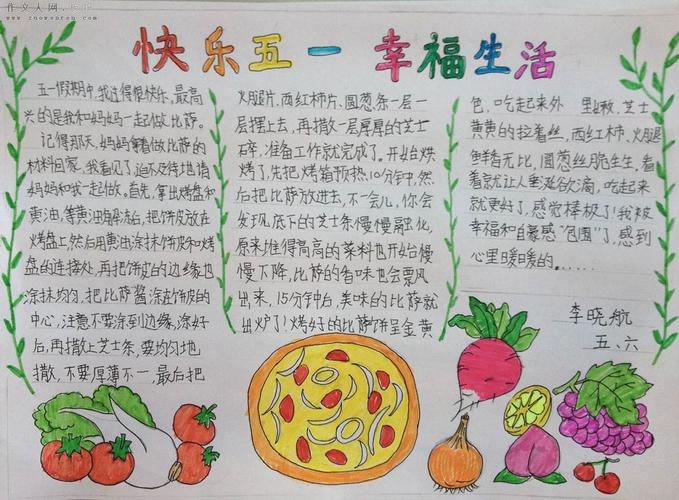 作文人网
www.zuowenren.com
快乐五一 幸福生活
五一假期中,我过得很快乐,最高
兴的是我和妈妈一起做比萨。
记得那天,妈妈拿着做比萨的
材料回家,我看见了,迫不及待地请
妈妈和我一起做。首先,拿出烤盘和
黄油,等黄油融化后,把饼皮放在
烤盘上,然后用黄油涂抹饼皮和烤
盘的连接处,再把饼皮的边缘也
涂抹均匀,把比萨酱涂在饼皮的
中心,注意不要涂到边缘,涂好
后,再撒上芝士条,要均匀地
撒,不要厚薄不一,最后把
火腿片、西红柿片、圆葱条一层一
层摆上去,再撒一层厚厚的芝士
碎,准备工作就完成了。开始烘
烤了,先把烤箱预热10分钟,然
后把比萨放进去,不一会儿,你会
发现底下的芝士条慢慢融化,
原来堆得高高的菜料也开始慢
慢下降,比萨的香味也会飘
出来,15分钟后,美味的比萨就
出炉了!烤好的比萨饼呈金黄
色,吃起来外 里嫩,芝士
黄黄的拉着丝,西红柿、火腿
鲜香无比,圆葱丝脆生生,看
着就让人垂涎欲滴,吃起来
就更好了,感觉棒极了!我被
幸福和自豪感“包围”了,感到
心里暖暖的......
李晓航
五、六